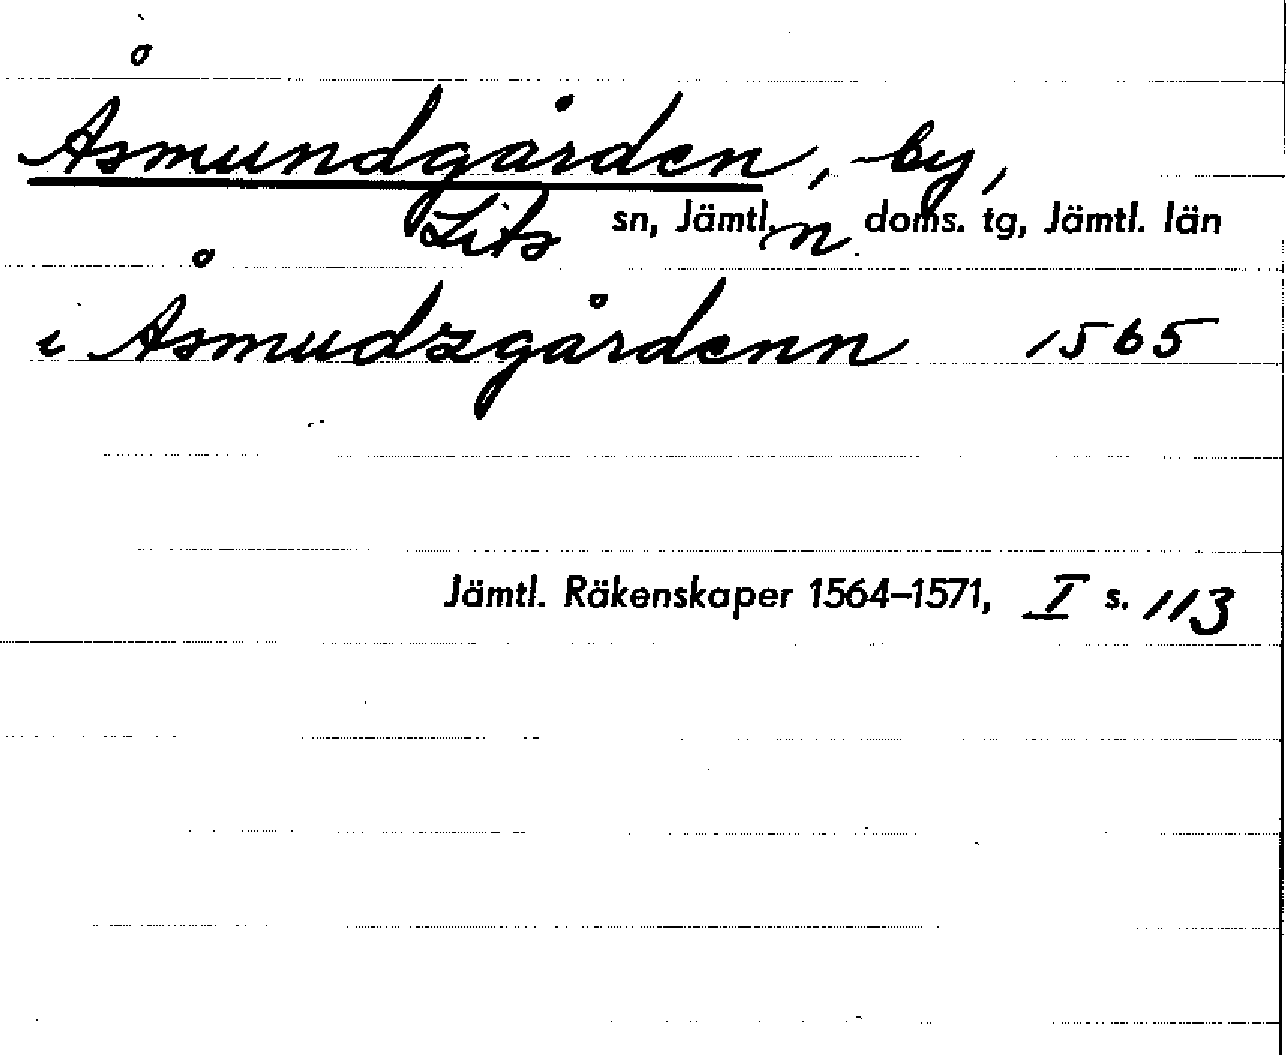 Åsmundgården, by,
Lits sn, Jämtl. n. doms. tg, Jämtl. län
i Åsmudzgårdenn 1565
Jämtl. Räkenskaper 1564–1571, I s. 113